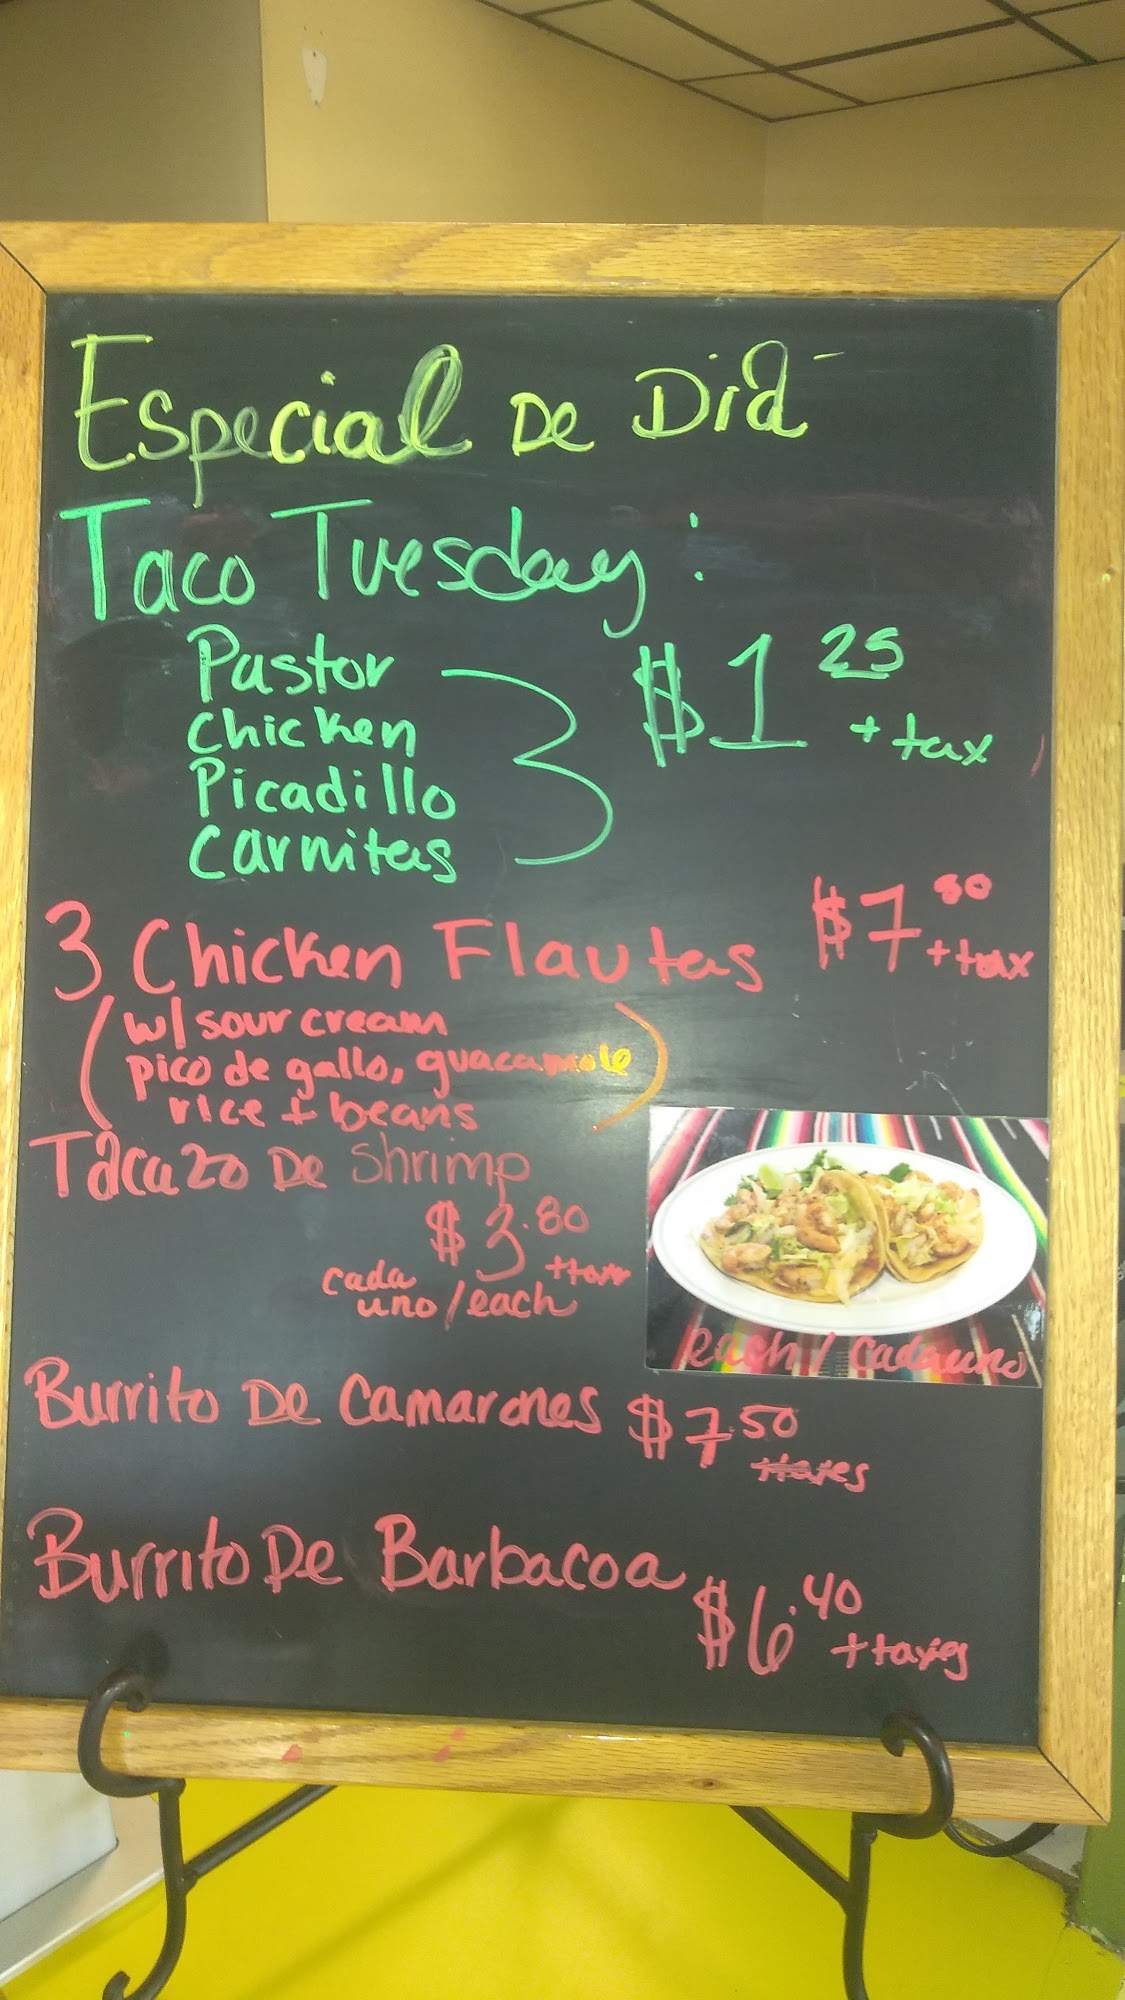 Especial De Diá
Taco Tuesday:
Pastor
Chicken
Picadillo
Carnitas
$1 25
+ tax
3 Chicken Flautas $7 80
+ tax
(w/ sour cream
pico de gallo, guacamole
rice + beans)
Tacazo De Shrimp
$3.80
+tax
cada
uno/each
each / cada uno
Burrito De Camarones $7.50
+taxes
Burrito De Barbacoa
$6.40
+taxes